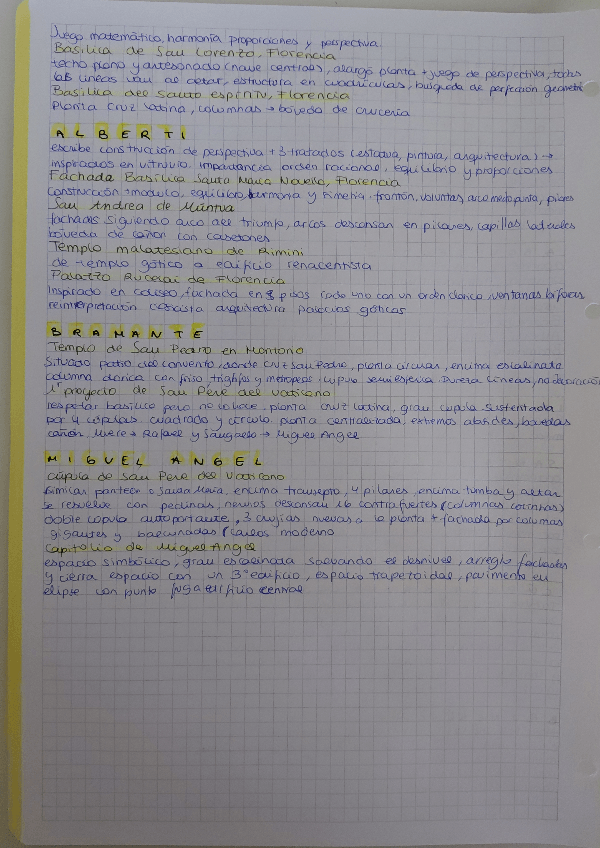 Juego matemático, harmonía proporciones y perspectiva
Basílica de San Lorenzo, Florencia
techo plano y artesonado (nave central), alarga planta + juego de perspectiva, todas
las líneas van al altar, estructura en cuadrículas, búsqueda de perfección geometri
Basílica del Santo Espíritu, Florencia
Planta cruz latina, columnas → bóveda de crucería
ALBERTI
escribe construcción de perspectiva + 3 tratados (estatua, pintura, arquitectura) →
inspirados en vitruvio. Importancia orden racional, equilibrio y proporciones
Fachada Basílica Santa Maria Novella, Florencia
Construcción + modulo, equilibrio, harmonía y simetría. frontón, voluntas, arco medio punto, pilares
San Andrea de Mantua
fachadas siguiendo arco del triumfo, arcos descansan en pilares, capillas laterales
bóveda de cañon con casetones
Templo malatesiano de Rimini
de templo gótico a edificio renacentista
Palazzo Rucelai de Florencia
Inspirado en coliseo, fachada en 3 pisos cada uno con un orden clásico, ventanas
reinterpretación arquitectura palacios góticos
BRAMANTE
Templo de San Pedro en Montorio
Situado patio del convento, donde cruz San Pedro, planta circular, encima escalinada
columna dorica con friso triglifos y metropas, cúpula semiesferia. Pureza líneas, no decoración
1º proyecto de San Pere del Vaticano
respetar basílica pero no lo hace, planta cruz latina, gran cúpula sustentada
por 4 cúpulas, cuadrado y círculo planta centralizada, extremos absides, bóvedas
cañón, Muere → Rafael y Sangallo → Miguel Angel
MIGUEL ANGEL
cúpula de San Pere del Vaticano
similar panteón o Santa Maria, encima transepto, 4 pilares, encima tumba y altar
se resuelve con pechinas, nervios descansan 16 contrafuertes (columnas corintias)
doble cúpula autoportante, 3 crujías nuevas a la planta + fachada por columas
gigantes y balaunadas (Carlos moderno
Capitolio de Miguel Angel
espacio simbólico, gran escalinada salvando el desnivel, arregla fachadas
y cierra espacio con un 3º edificio, espacio trapezoidal, pavimento en
elipse con punto fuga edificio central